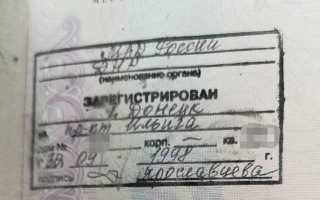 МВД России
(наименование органа)
ЗАРЕГИСТРИРОВАН
г. Донецк
пр-кт Ильича
дом № корп. — кв.
"28" 04 1998 г.
подпись Ярославцева